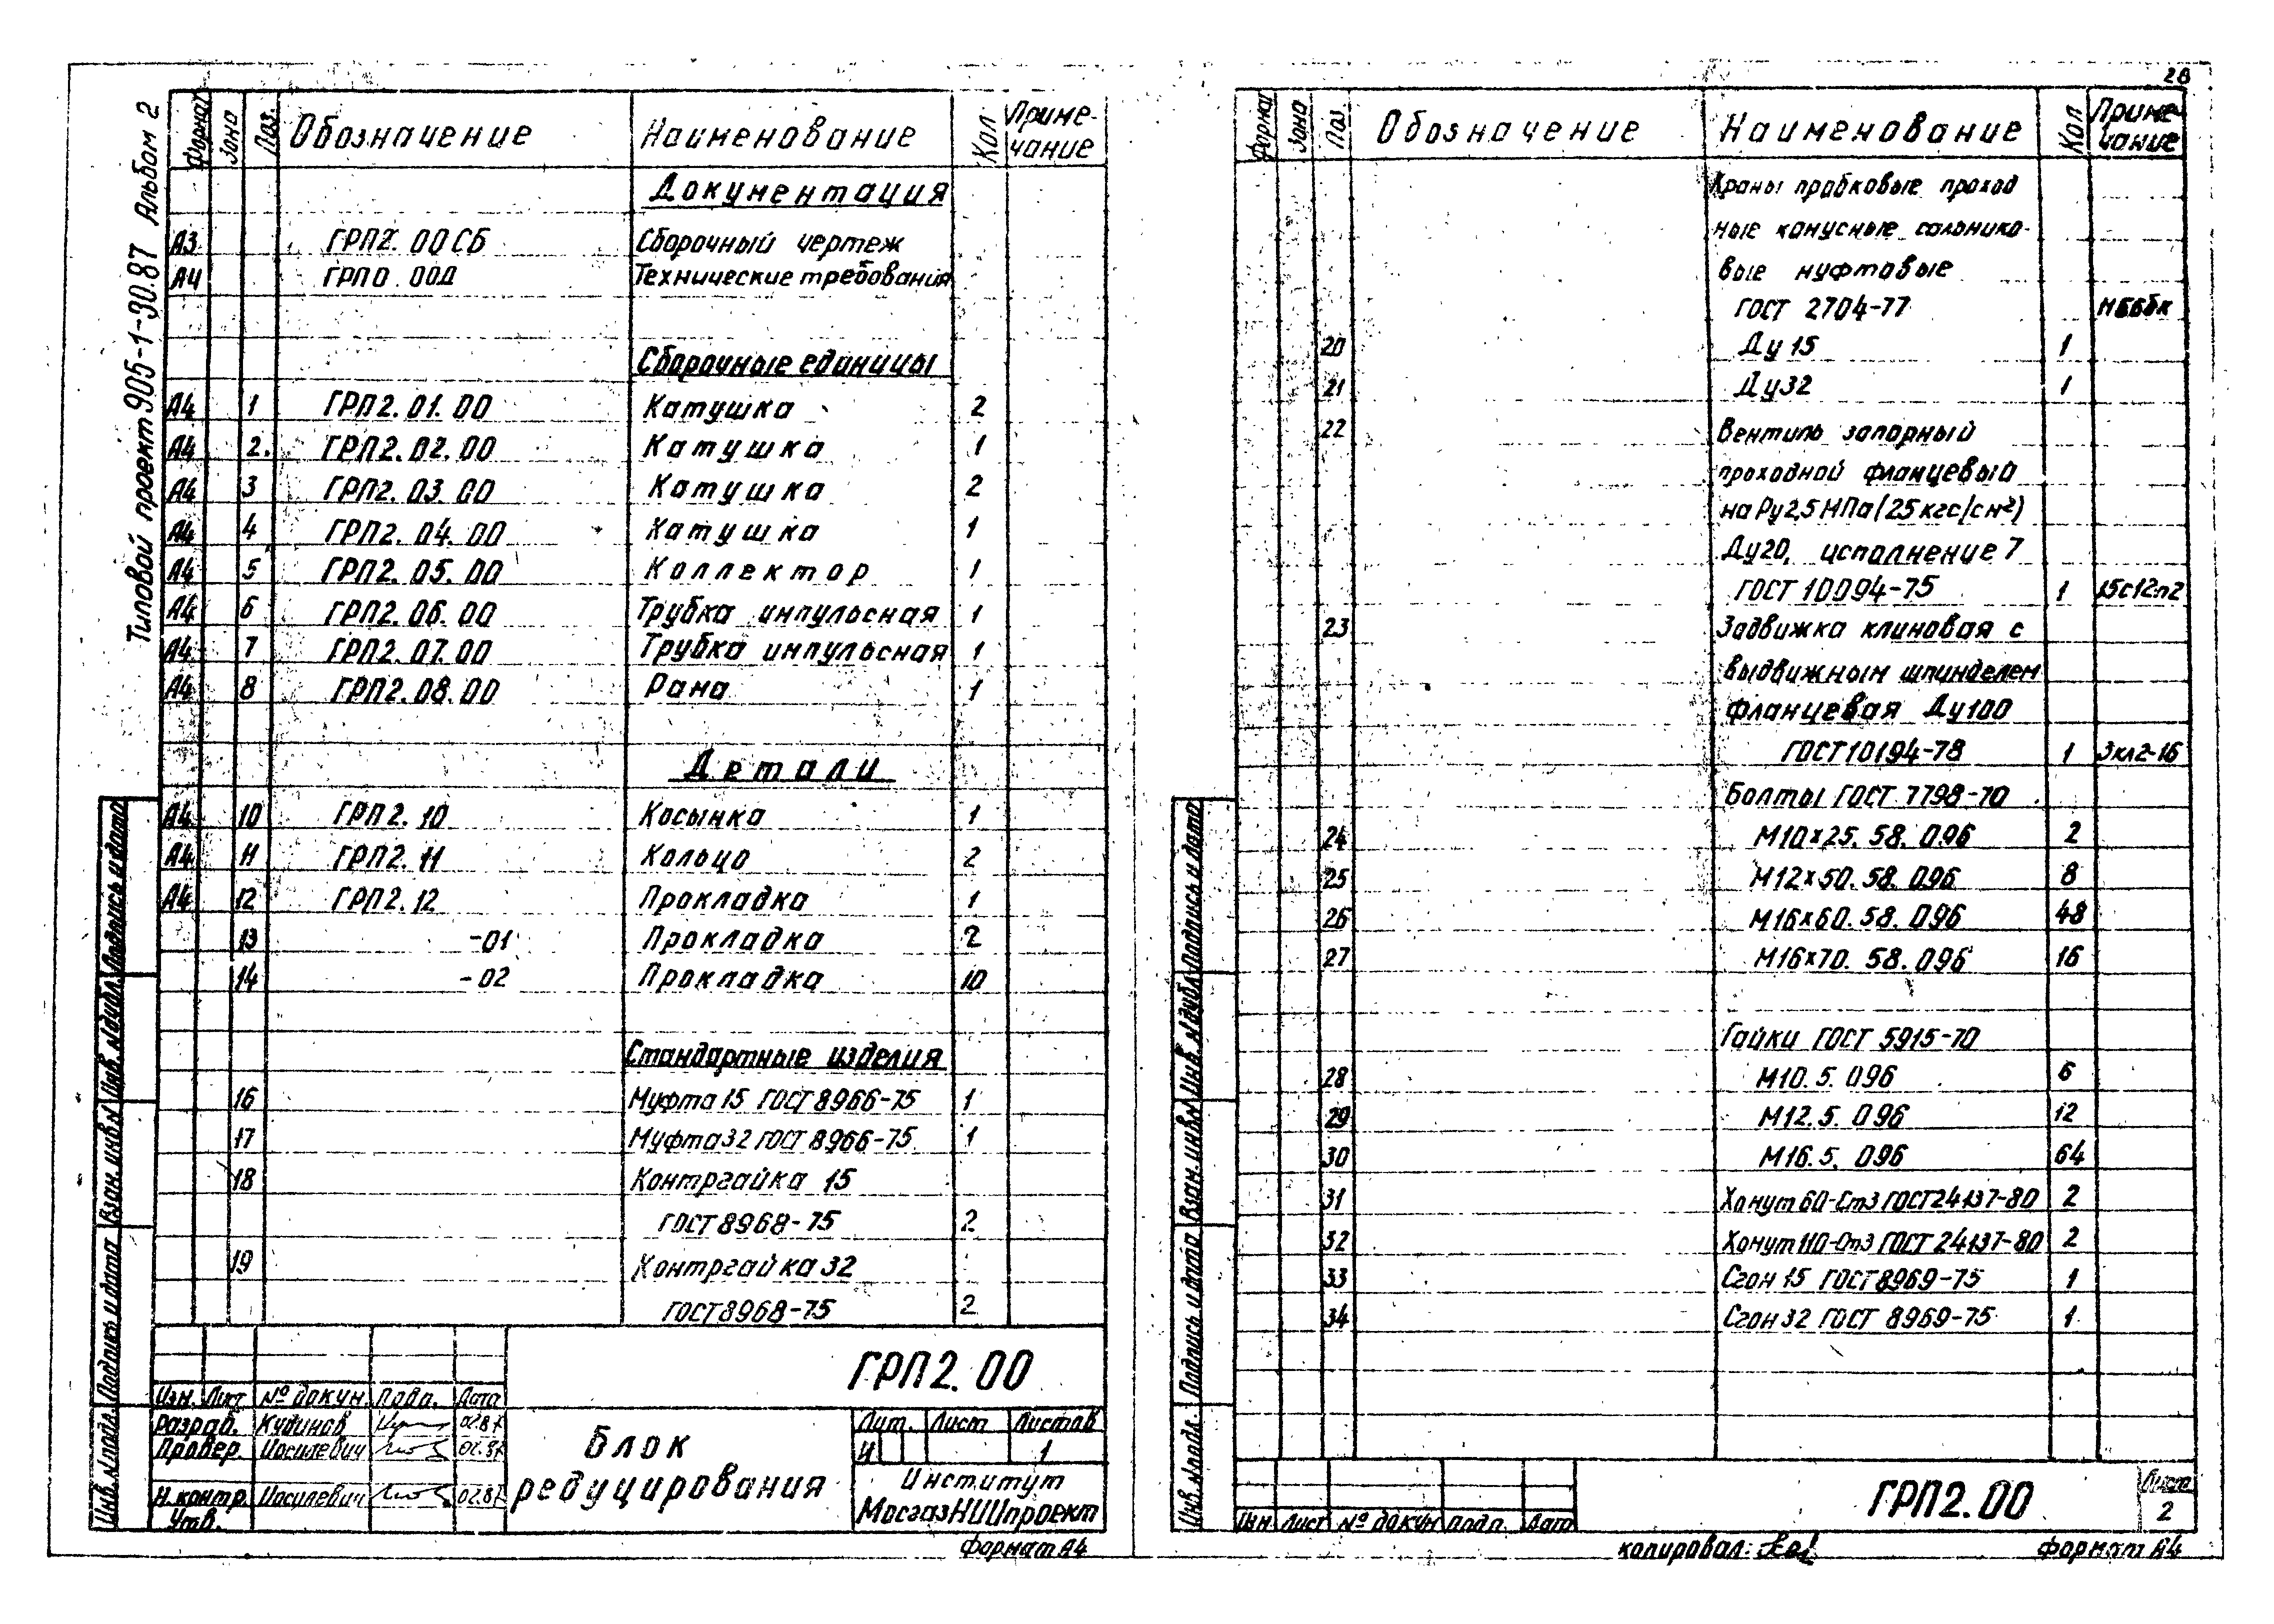 Типовой проект 905-1-30.87 Альбом 2
Формат Зона Поз. Обозначение Наименование Кол Приме-
чание
Документация
А3 ГРП2.00СБ Сборочный чертеж
А4 ГРП0.00Д Технические требования
Сборочные единицы
А4 1 ГРП2.01.00 Катушка 2
А4 2. ГРП2.02.00 Катушка 1
А4 3 ГРП2.03.00 Катушка 2
А4 4 ГРП2.04.00 Катушка 1
А4 5 ГРП2.05.00 Коллектор 1
А4 6 ГРП2.06.00 Трубка импульсная 1
А4 7 ГРП2.07.00 Трубка импульсная 1
А4 8 ГРП2.08.00 Рама 1
Детали
А4 10 ГРП2.10 Косынка 1
А4 11 ГРП2.11 Кольцо 2
А4 12 ГРП2.12 Прокладка 1
13 -01 Прокладка 2
14 -02 Прокладка 10
Стандартные изделия
16 Муфта 15 ГОСТ 8966-75 1
17 Муфта 32 ГОСТ 8966-75 1
18 Контргайка 15
ГОСТ 8968-75 2
19 Контргайка 32
ГОСТ 8968-75 2
Инв. N подл. Подпись и дата Взам. инв N Инв. N дубл. Подпись и дата
ГРП2.00
Изм. Лист № докум. Подп. Дата
Разраб. Кудинов 02.87
Провер. Иосилевич 02.87
Н.контр. Иосилевич 02.87
Утв.
Блок
редуцирования
Лит. Лист Листов
И 1
Институт
МосгазНИИпроект
Формат А4
28
Формат Зона Поз Обозначение Наименование Кол Приме-
чание
Краны пробковые проход
ные конусные сальнико-
вые муфтовые
ГОСТ 2704-77 11Б6бк
20 Ду 15 1
21 Ду32 1
22 Вентиль запорный
проходной фланцевый
на Ру2,5 МПа (25 кгс/см²)
Ду20, исполнение 7
ГОСТ 10094-75 1 15с12п2
23 Задвижка клиновая с
выдвижным шпинделем
фланцевая Ду100
ГОСТ 10194-78 1 Зкл2-16
Болты ГОСТ 7798-70
24 М10×25.58.096 2
25 М12×50.58.096 8
26 М16×60.58.096 48
27 М16×70.58.096 16
Гайки ГОСТ 5915-70
28 М10.5.096 6
29 М12.5.096 12
30 М16.5.096 64
31 Хомут 60-Ст3 ГОСТ 24137-80 2
32 Хомут 110-Ст3 ГОСТ 24137-80 2
33 Сгон 15 ГОСТ 8969-75 1
34 Сгон 32 ГОСТ 8969-75 1
Инв. N подл. Подпись и дата Взам. инв N Инв. N дубл Подпись и дата
Изм Лист № докум Подп. Дата
ГРП2.00
Лист
2
копировал:
Формат А4